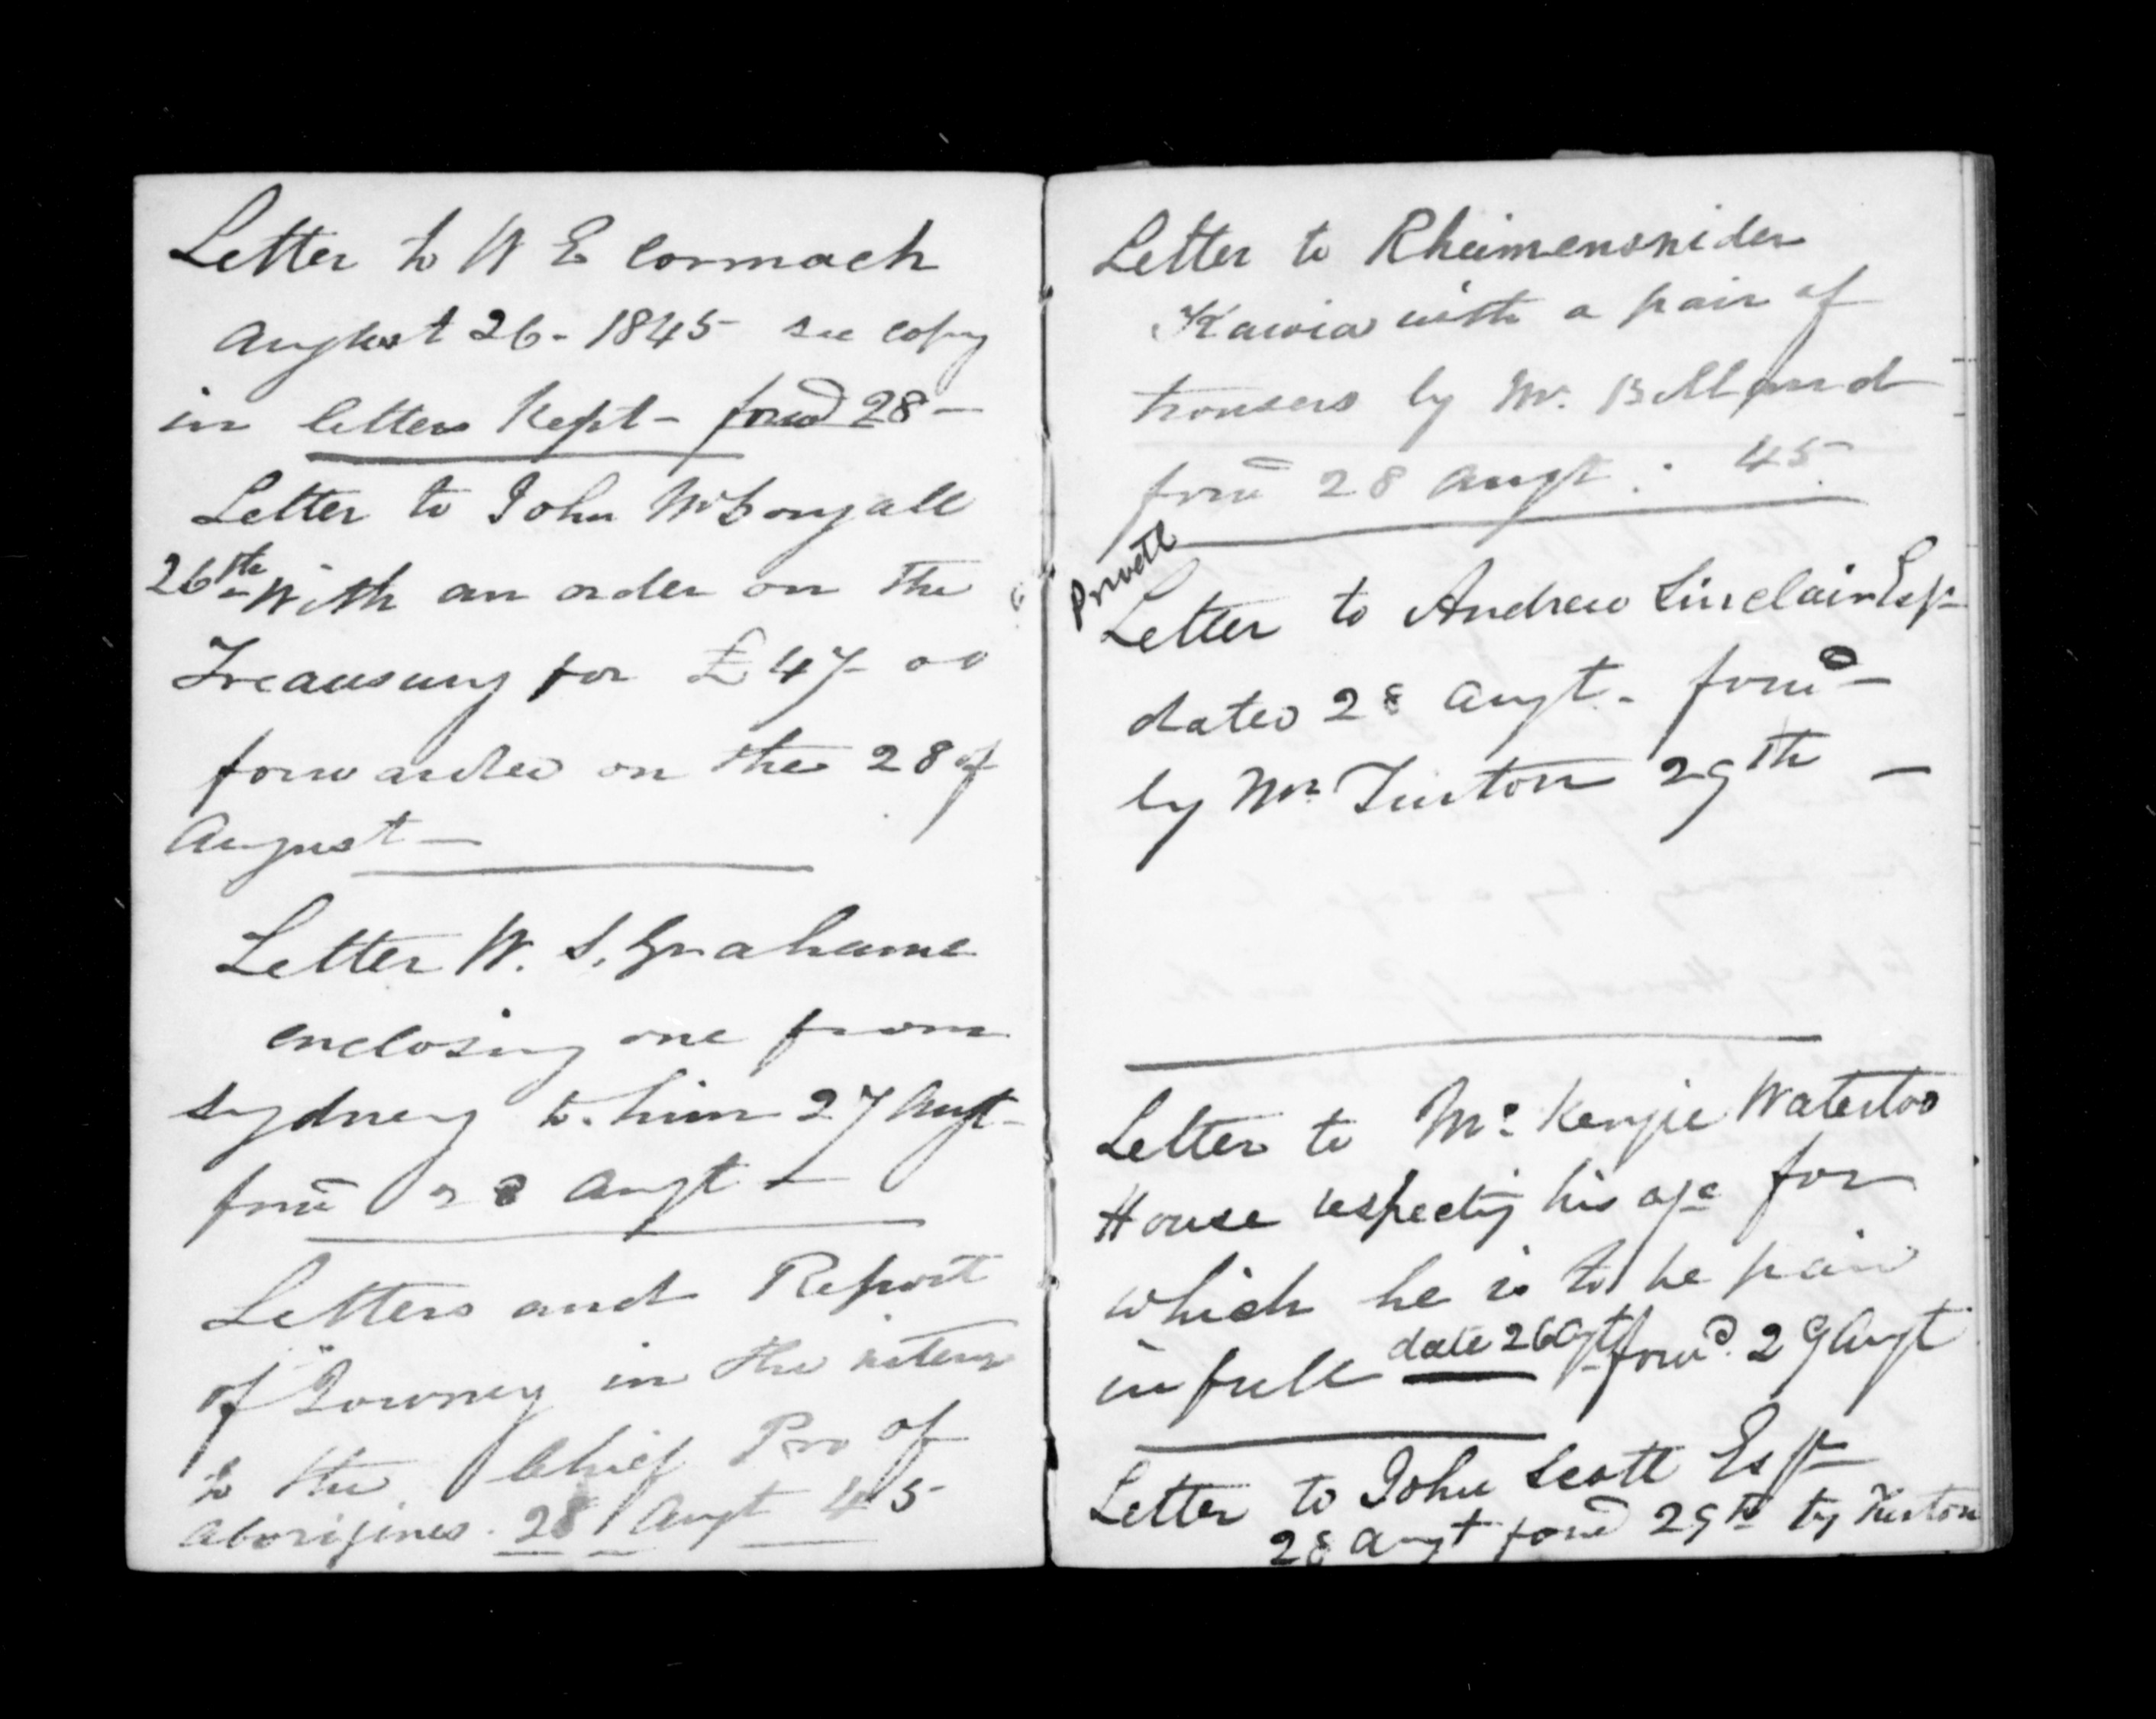 Letter to W E Cormack
August 26 - 1845 see copy
in letters kept - forwd 28 -
Letter to John McDougall
26th With an order on the
Treausury for £47 - 00
forwarded on the 28 of
August -
Letter W. S. Grahame
enclosing one from
Sydney to him 27 Augt -
forwd 28 Augt -
Letters and Report
of Journey in the interior
to the Chief Pro of
Aborigines. 28 Augt 45 -
Letter to Rheimensnider
Kawia with a pair of
trousers by Mr.
forwd 28 Augt. 45.
Private
Letter to Andrew Sinclair Esqr
dated 28 Augt. forwd -
by Mr Turton 29th -
Letter to Mr. Kenzie Waterloo
House respecting his a/c for
which he is to be paid
in full date 26 Agt forwd. 29 Augt
Letter to John Scott Esqr
28 Augt forwd 29th by Turton